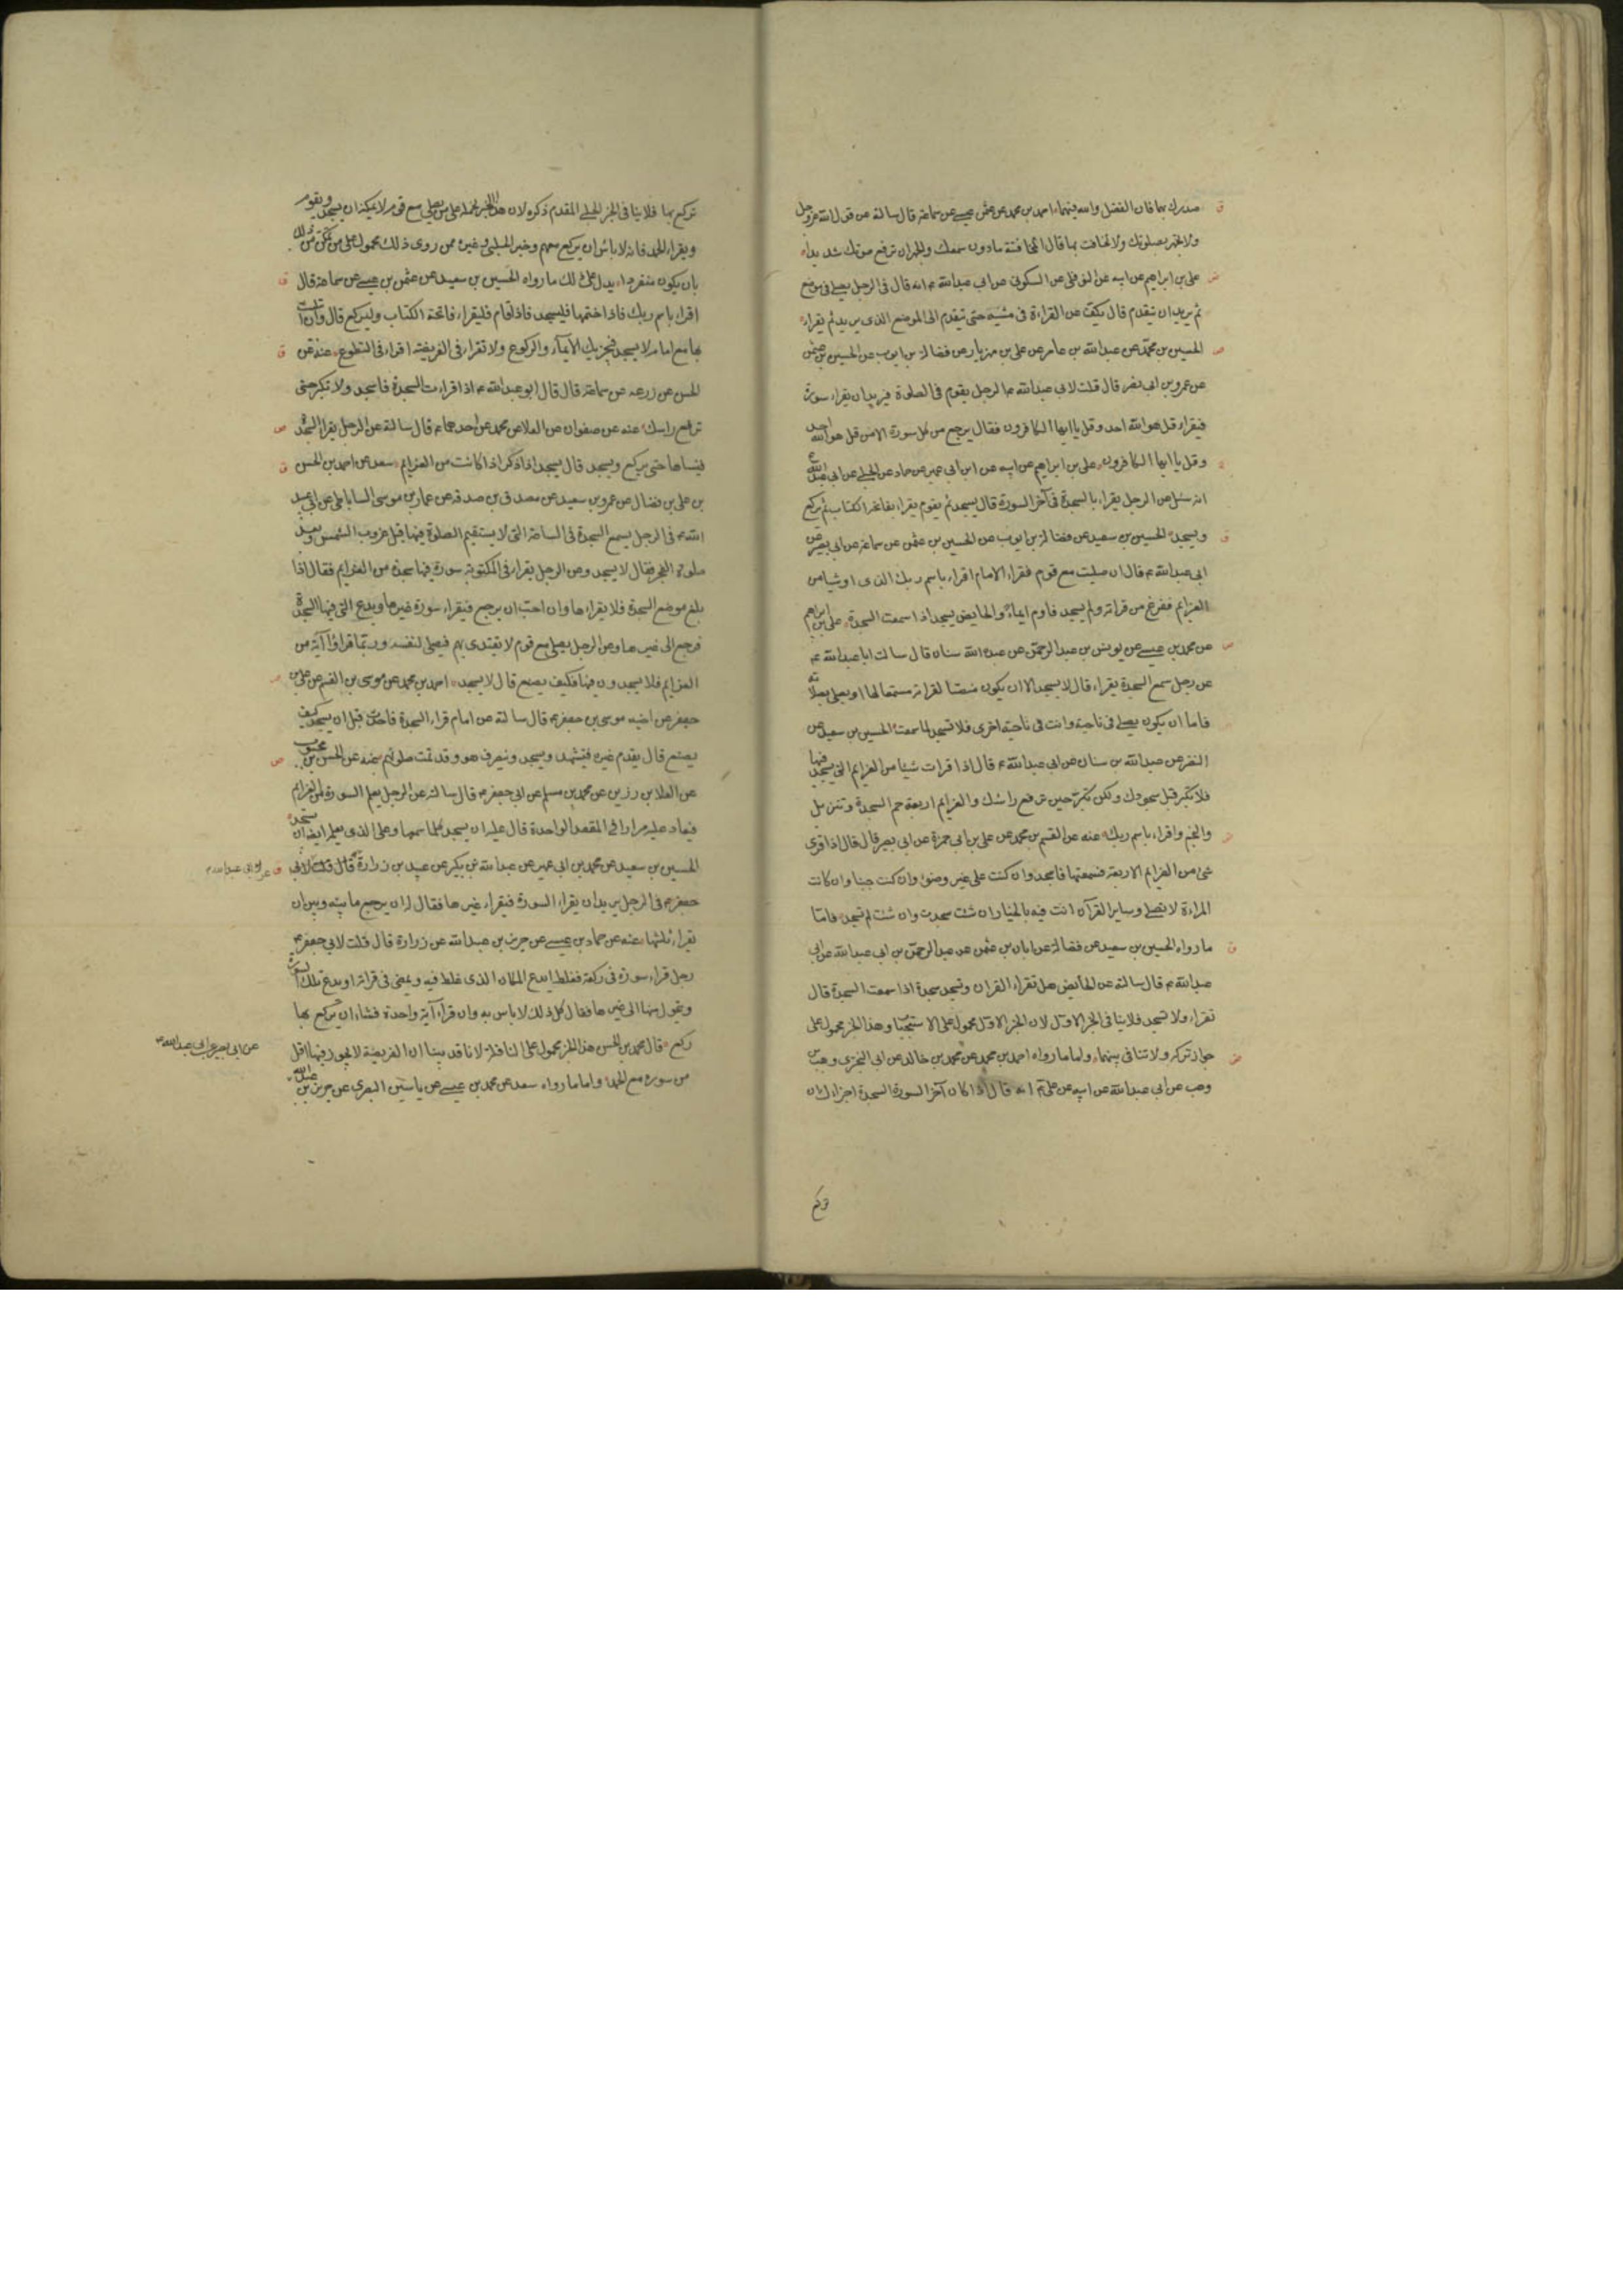 صدرك بها فان الفضل والله فيهما احمد بن محمد عن عثمن بن عيسى عن سماعة قال سالته عن قول الله عز وجل
ولا تجهر بصلوتك ولا تخافت بها قال المخافتة مادون سمعك والجهر ان ترفع صوتك شديدا
على بن ابراهيم عن ابيه عن النوفلى عن السكونى عن ابى عبدالله ع انه قال فى الرجل يصلى فى موضع
ثم يريد ان يتقدم قال يكف عن القراءة فى مشيه حتى يتقدم الى الموضع الذى يريد ثم يقراء
الحسين بن محمد عن عبدالله بن عامر عن على بن مهزيار عن فضالة بن ايوب عن الحسين بن عثمن
عن عمرو بن ابى نصر قال قلت لابى عبدالله ع الرجل يقوم فى الصلوة فيريد ان يقراء سورة
فيقراء قل هو الله احد وقل يا ايها الكافرون فقال يرجع من كل سورة الا من قل هو الله احد
وقل يا ايها الكافرون على بن ابراهيم عن ابيه عن ابن ابى عمير عن حماد عن الحلبى عن ابى عبدالله ع
انه سئل عن الرجل يقراء بالسجدة فى آخر السورة قال يسجد ثم يقوم يقراء بفاتحة الكتاب ثم يركع
ويسجد الحسين بن سعيد عن فضالة بن ايوب عن الحسين بن عثمن عن سماعة عن ابى بصير عن
ابى عبدالله ع قال ان صليت مع قوم فقراء الامام اقراء باسم ربك الذى او شيا من
العزايم ففرغ من قراته ولم يسجد فاوم ايماء والحايض يسجد اذا سمعت السجدة على بن ابراهيم
عن محمد بن عيسى عن يونس بن عبدالرحمن عن عبد الله سنان قال سالت ابا عبدالله ع
عن رجل سمع السجدة يقراء قال لا يسجد الا ان يكون منصتا لقراته مستمعا لها او يصلى بصلاته
فاما ان يكون يصلى فى ناحية وانت فى ناحية اخرى فلا تسجد لما سمعت الحسين بن سعيد عن
النضر عن عبدالله بن سنان عن ابى عبدالله ع قال اذا قرات شيئا من العزايم التى يسجد فيها
فلا تكبر قبل سجودك ولكن تكبر حين ترفع راسك والعزايم اربعة حم السجدة وتنزيل
والنجم واقراء باسم ربك عنه عن القسم بن محمد عن على بن ابى حمزة عن ابى بصير قال قال اذا قرى
شى من العزايم الاربعة فسمعتها فاسجد وان كنت على غير وضوء وان كنت جنبا وان كانت
المراءة لا تصلى وساير القرآن انت فيه بالخيار ان شئت سجدت وان شئت لم تسجد فاما
ما رواه الحسين بن سعيد عن فضالة عن ابان بن عثمن عن عبدالرحمن بن ابى عبدالله عن ابى
عبدالله ع قال سالته عن الحائض هل تقراء القران وتسجد سجدة اذا سمعت السجدة قال
تقراء ولا تسجد فلا ينافى الخبر الاول لان الخبر الاول محمول على الاستحباب وهذا الخبر محمول على
جواز تركه ولا تنافى بينهما واما ما رواه احمد بن محمد عن محمد بن خالد عن ابى البخترى وهب بن
وهب عن ابى عبدالله عن ابيه عن على ع انه قال اذا كان آخر السورة السجدة اجزاك ان
تركع
تركع بها فلا ينافى الخبر الحلبى المقدم ذكره لان هذا الخبر نحمله على من يصلى مع قوم لا يمكنه ان يسجد ويقوم
ويقراء الحمد فانه لا باس ان يركع معهم وخبر الحلبى وغيره ممن روى ذلك محمول على من تمكن من ذلك
بان يكون منفردا يدل على ذلك ما رواه الحسين بن سعيد عن عثمن بن عيسى عن سماعة قال
اقراء باسم ربك فاذا ختمها فليسجد فاذا قام فليقراء فاتحة الكتاب وليركع قال وان ابتليت
بها مع امام لا يسجد فيجزيك الايماء والركوع ولا تقراء فى الفريضة اقراء فى التطوع عنه عن
الحسن عن زرعه عن سماعة قال قال ابو عبدالله ع اذا قراءت السجدة فاسجد ولا تكبر حتى
ترفع راسك عنه عن صفوان عن العلا عن محمد عن احدهما ع قال سالته عن الرجل يقراء السجدة
فينساها حتى يركع ويسجد قال يسجد اذا ذكر اذا كانت من العزايم سعد عن احمد بن الحسن
بن على بن فضال عن عمرو بن سعيد عن مصدق بن صدقه عن عمار بن موسى الساباطى عن ابى عبد
الله ع فى الرجل يسمع السجدة فى الساعة التى لا يستقيم الصلوة فيها قبل غروب الشمس وبعد
صلوة الفجر فقال لا يسجد وعن الرجل يقراء فى المكتوبة سورة فيها سجدة من العزايم فقال اذا
بلغ موضع السجدة فلا يقراءها وان احب ان يرجع فيقراء سورة غيرها ويدع التى فيها السجدة
فرجع الى غيرها وعن الرجل يصلى مع قوم لا يقتدى بهم فيصلى لنفسه وربما قراؤا آية من
العزايم فلا يسجدون فيها فكيف يصنع قال لا يسجد احمد بن محمد عن موسى بن القسم عن على بن
جعفر عن اخيه موسى بن جعفر ع قال سالته عن امام قراء السجدة فاحدث قبل ان يسجد كيف
يصنع قال يقدم غيره فيتشهد ويسجد وينصرف هو وقد تمت صلوتهم عنه عن الحسن بن محبوب
عن العلا بن رزين عن محمد بن مسلم عن ابى جعفر ع قال سالته عن الرجل يعلم السورة من العزايم
فيعاد عليه مرارا فى المقعد الواحدة قال عليه ان يسجد كلما سمعها وعلى الذى يعلمه ايضا ان يسجد
الحسين بن سعيد عن محمد بن ابى عمير عن عبدالله بن بكير عن عبيد بن زرارة قال قلت لابى
عن ابى عبدالله ع
جعفر ع فى الرجل يريد ان يقراء السورة فيقراء غيرها فقال له ان يرجع ما بينه وبين ان
يقراء ثلثيها عنه عن حماد بن عيسى عن حريز بن عبدالله عن زرارة قال قلت لابى جعفر ع
رجل قراء سورة فى ركعة فغلط ايدع المكان الذى غلط فيه ويمضى فى قراته او يدع تلك السورة
ويتحول منها الى غيرها فقال كل ذلك لا باس به وان قراء آية واحدة فشاء ان يركع بها
ركع قال محمد بن الحسن هذا الخبر محمول على النافلة لانا قد بينا ان الفريضة لا يجوز فيها اقل
عن ابى بصير عن ابى عبدالله ع
من سورة مع الحمد واما ما رواه سعد عن محمد بن عيسى عن ياسين البصرى عن حريز بن عبدالله